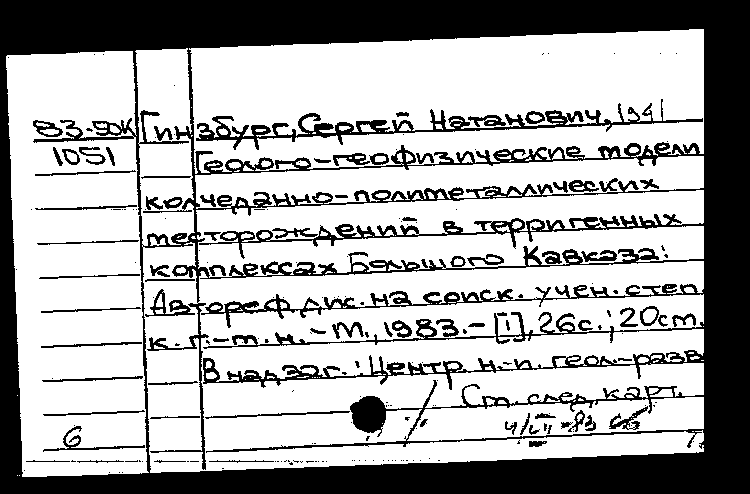 83-50К Гинзбург, Сергей Натанович, 1941
1051 Геолого-геофизические модели
колчеданно-полиметаллических
месторождений в терригенных
комплексах Большого Кавказа:
Автореф. дис. на соиск. учен. степ.
к. г.-м.н. - М., 1983. - [1], 26с.; 20см.
В надзаг.: Центр. н.-и. геол.-разв
См. след. карт.
6